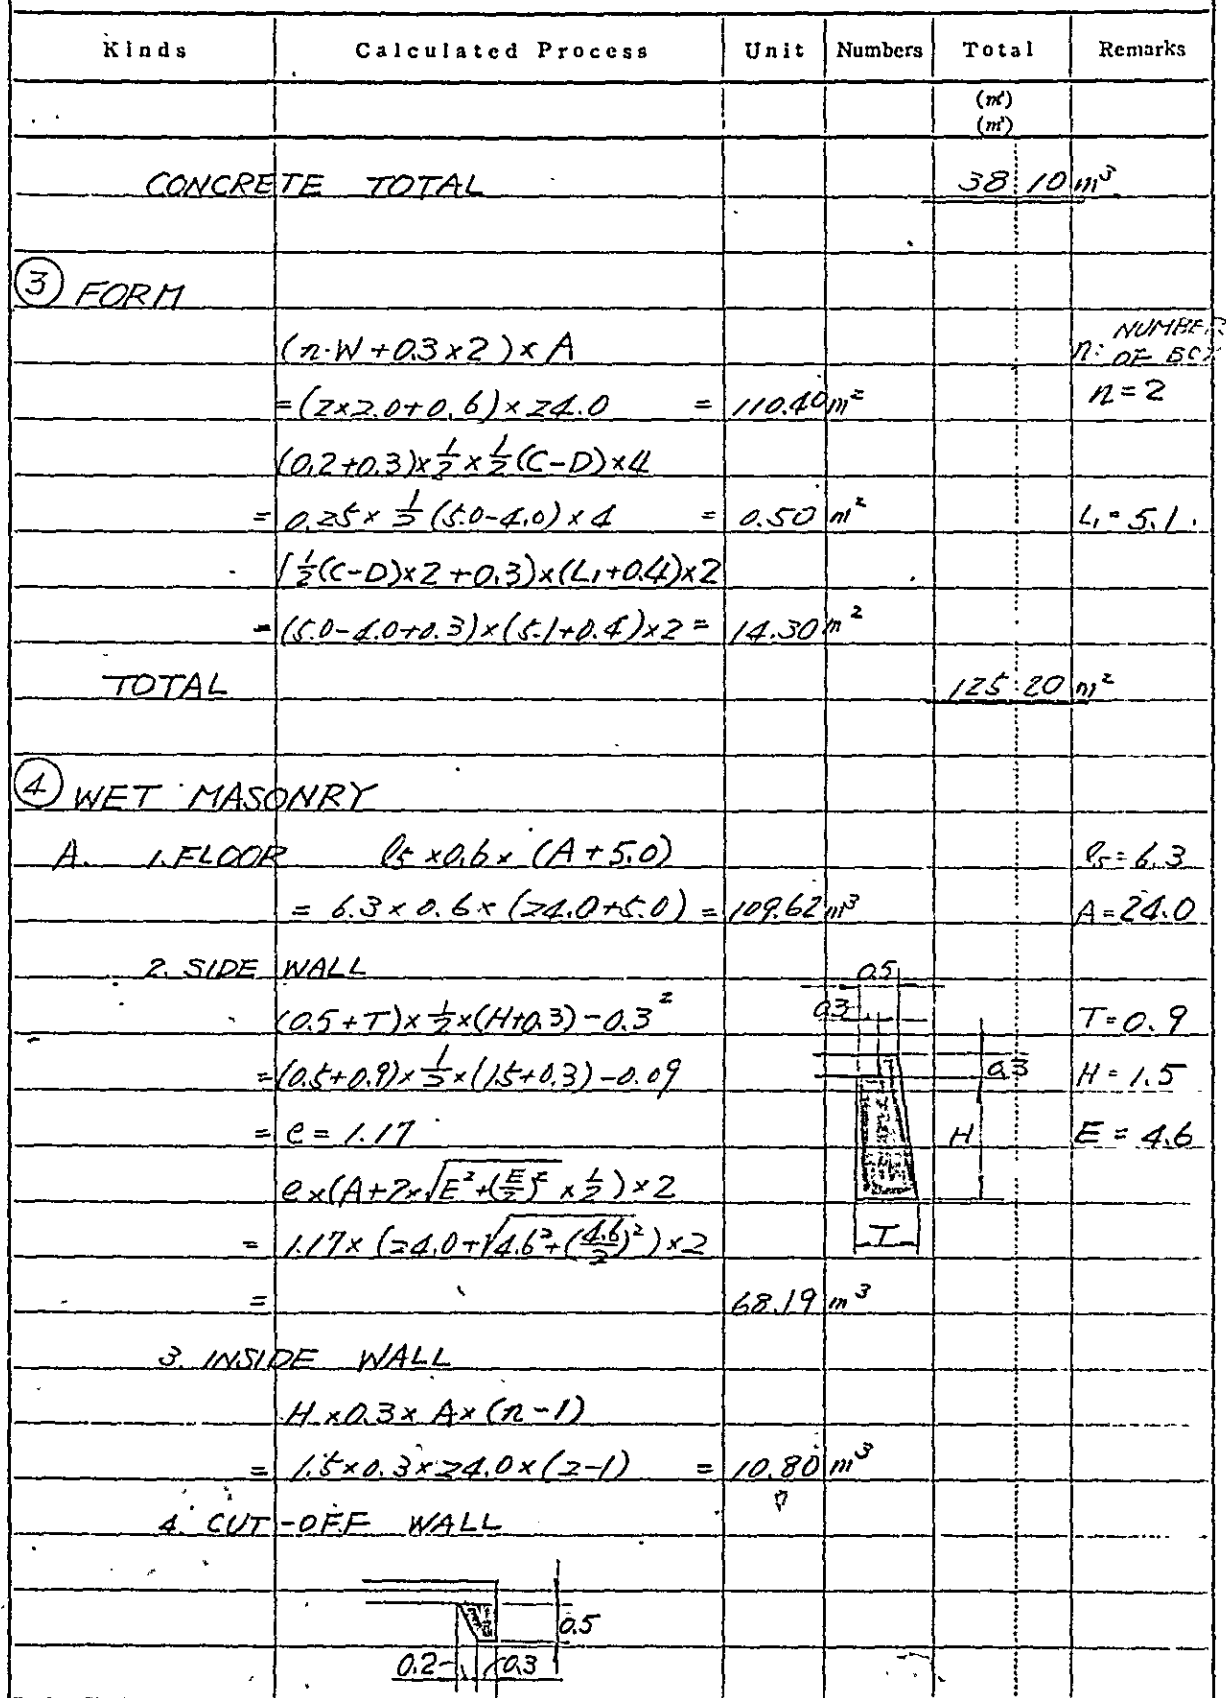 Kinds Calculated Process Unit Numbers Total Remarks
(m²)
(m³)
CONCRETE TOTAL 38.10 m³
③ FORM
(n·W+0.3×2)×A n: NUMBER OF BOX
=(2×2.0+0.6)×24.0 = 110.40 m² n=2
(0.2+0.3)×½×½(C-D)×4
= 0.25×½(5.0-4.0)×4 = 0.50 m² L₁=5.1
(½(C-D)×2+0.3)×(L₁+0.4)×2
=(5.0-4.0+0.3)×(5.1+0.4)×2= 14.30 m²
TOTAL 125.20 m²
④ WET MASONRY
A. 1. FLOOR ℓ₅×0.6×(A+5.0) ℓ₅=6.3
= 6.3×0.6×(24.0+5.0) = 109.62 m³ A=24.0
2. SIDE WALL 0.5
(0.5+T)×½×(H+0.3)-0.3² 0.3 T=0.9
=(0.5+0.9)×½×(1.5+0.3)-0.09 0.3 H=1.5
= e = 1.17 H E = 4.6
e×(A+2×√E²+(E/2)²×½)×2
= 1.17×(24.0+√4.6²+(4.6/2)²)×2 T
= 68.19 m³
3. INSIDE WALL
H×0.3×A×(n-1)
= 1.5×0.3×24.0×(2-1) = 10.80 m³
4. CUT-OFF WALL
0.5
0.2 0.3